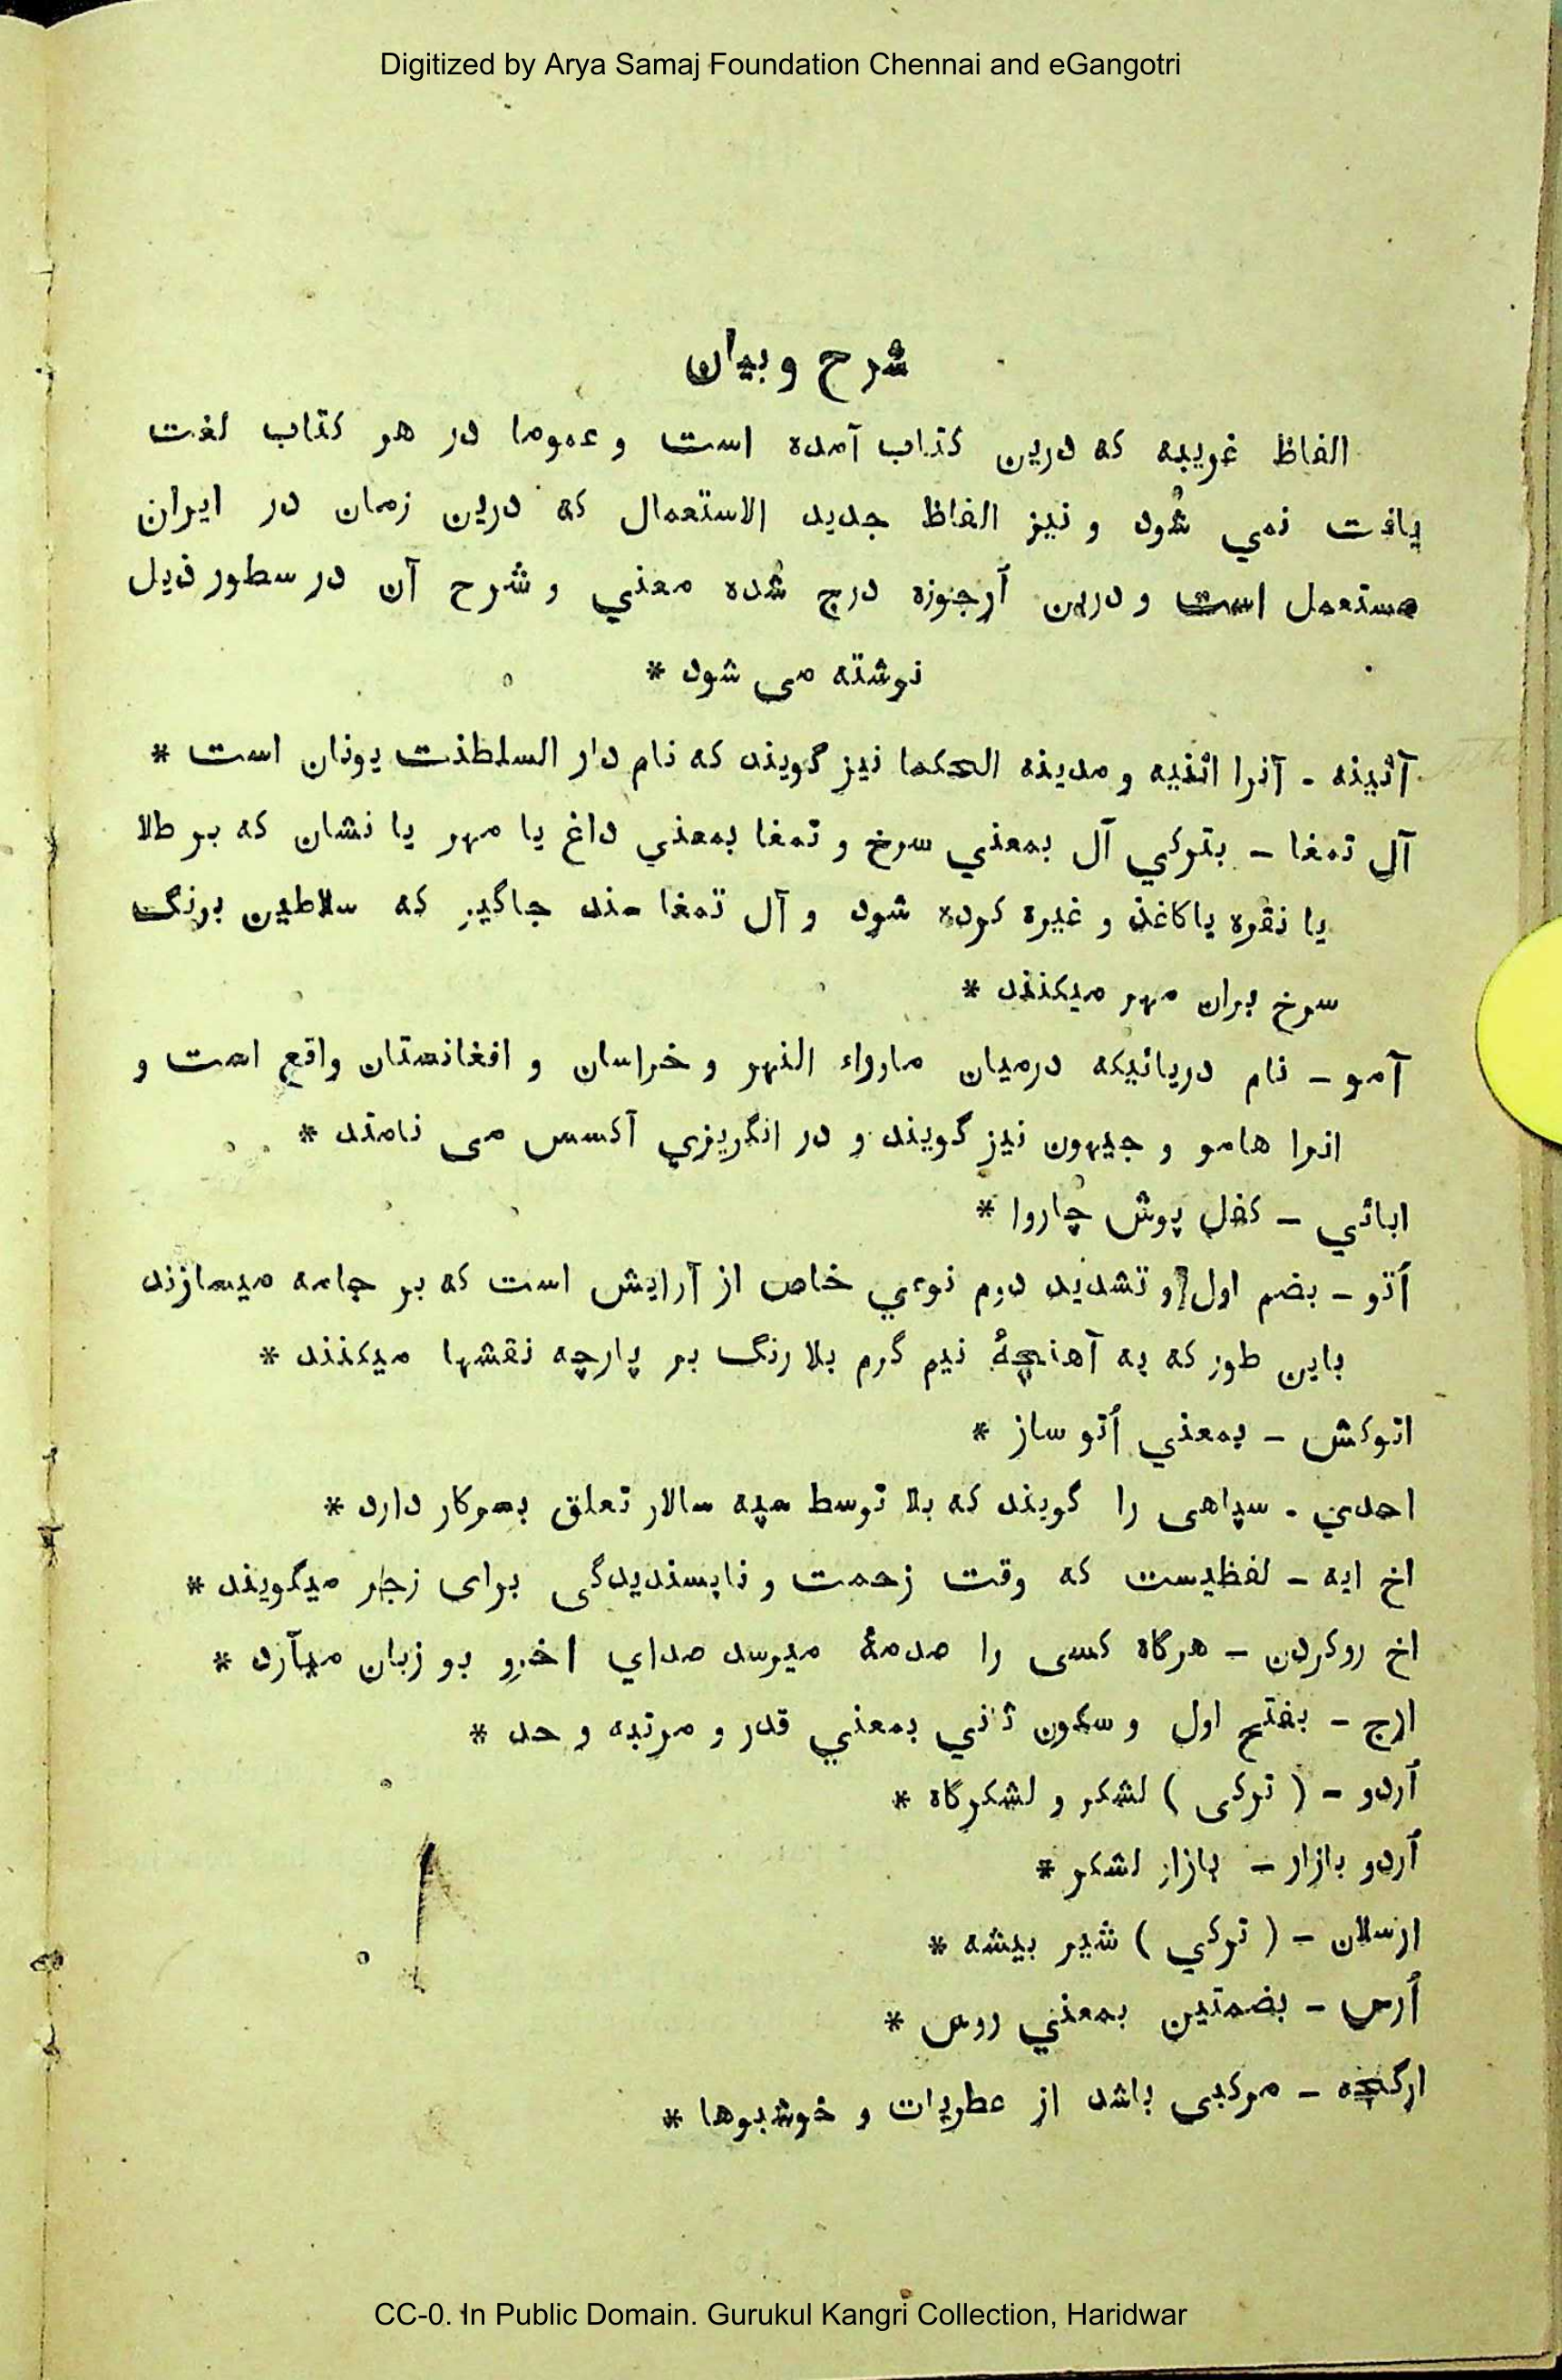 Digitized by Arya Samaj Foundation Chennai and eGangotri
شرح و بیان
الفاظ غریبه که درین کتاب آمده است و عموما در هر کتاب لغت
یافت نمي شود و نیز الفاظ جدید الاستعمال که درین زمان در ایران
مستعمل است و درین اُرجوزه درج شُده معني و شرح آن در سطور ذیل
نوشته می شود *
آثینه - آنرا اثنیه و مدینه الحکما نیز گویند که نام دار السلطنت یونان است *
آل تمغا - بترکي آل بمعني سرخ و تمغا بمعني داغ یا مهر یا نشان که بر طلا
یا نقره یا کاغذ و غیره کرده شود و آل تمغا سند جاگیر که سلاطین برنگ
سرخ بران مهر میکنند *
آمو - نام دریائیکه درمیان ماوراء النهر و خراسان و افغانستان واقع است و
انرا هامو و جیهون نیز گویند و در انگریزي آکسس می نامند *
ابائي - کفل پوش چاروا *
اُتو - بضم اول و تشدید دوم نوعي خاص از آرایش است که بر جامه میسازند
باین طور که به آهنچۀ نیم گرم بلا رنگ بر پارچه نقشها میکنند *
اتوکش - بمعني اُتو ساز *
احدي - سپاهی را گویند که بلا توسط سپه سالار تعلق بسرکار دارد *
اخ ایه - لفظیست که وقت زحمت و ناپسندیدگی برای زجر میگویند *
اخ روکردن - هرگاه کسی را صدمۀ میرسد صداي اخرو بو زبان میآرد *
ارج - بفتح اول و سکون ثاني بمعني قدر و مرتبه و حد *
اُردو - ( ترکی ) لشکر و لشکرگاه *
اُردو بازار - بازار لشکر *
ارسلان - ( ترکي ) شیر بیشه *
اُرس - بضمتین بمعني روس *
ارگچه - مرکبی باشد از عطریات و خوشبوها *
CC-0. In Public Domain. Gurukul Kangri Collection, Haridwar